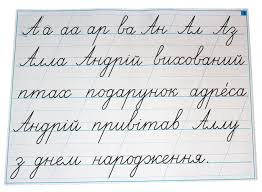 Аа аа ар ва Ан Ал Аз
Алла Андрій вихований
птах подарунок адре́са
Андрій привітав Аллу
з днем народження.